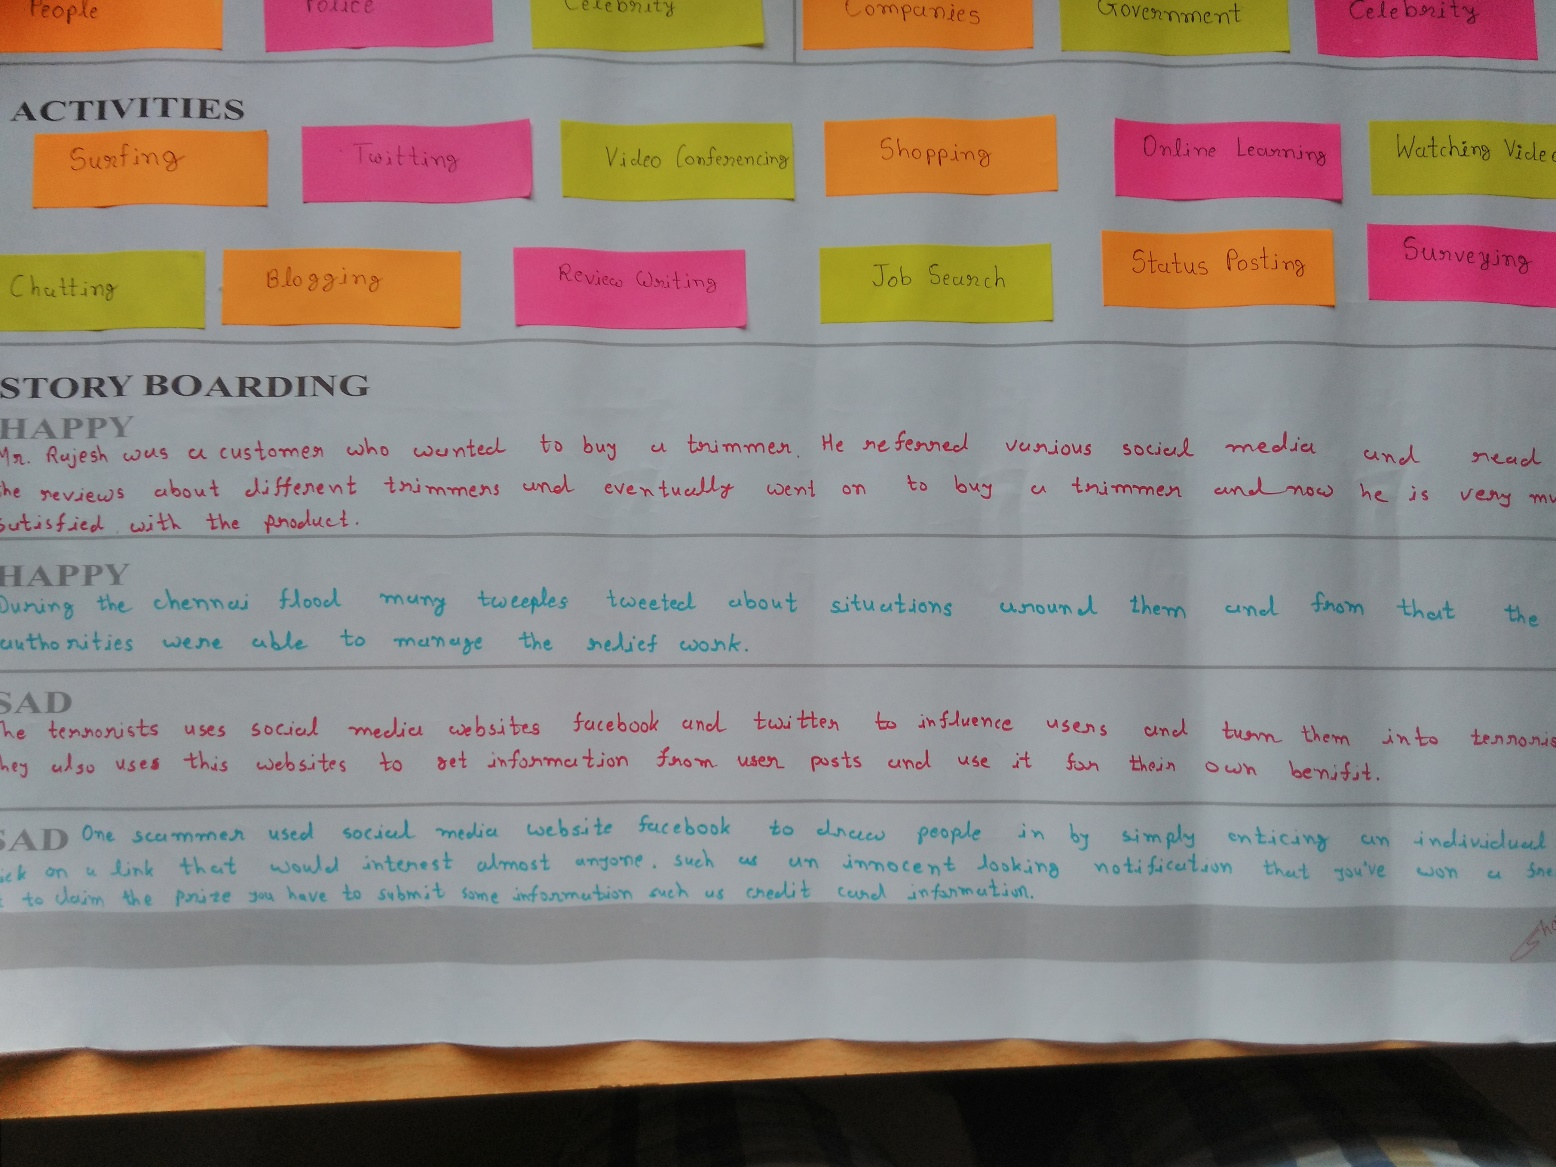 People Police Celebrity Companies Government Celebrity
ACTIVITIES
Surfing Twitting Video Conferencing Shopping Online Learning Watching Video
Chatting Blogging Review Writing Job Search Status Posting Surveying
STORY BOARDING
HAPPY
Mr. Rajesh was a customer who wanted to buy a trimmer. He referred various social media and read
he reviews about different trimmers and eventually went on to buy a trimmer and now he is very mu
satisfied with the product.
HAPPY
During the chennai flood many tweeples tweeted about situations around them and from that the
authorities were able to manage the relief work.
SAD
he terrorists uses social media websites facebook and twitter to influence users and turn them into terroris
hey also uses this websites to get information from user posts and use it for their own benifit.
SAD One scammer used social media website facebook to draw people in by simply enticing an individual
ick on a link that would interest almost anyone. such as an innocent looking notification that you've won a fre
to claim the prize you have to submit some information such us credit card information.